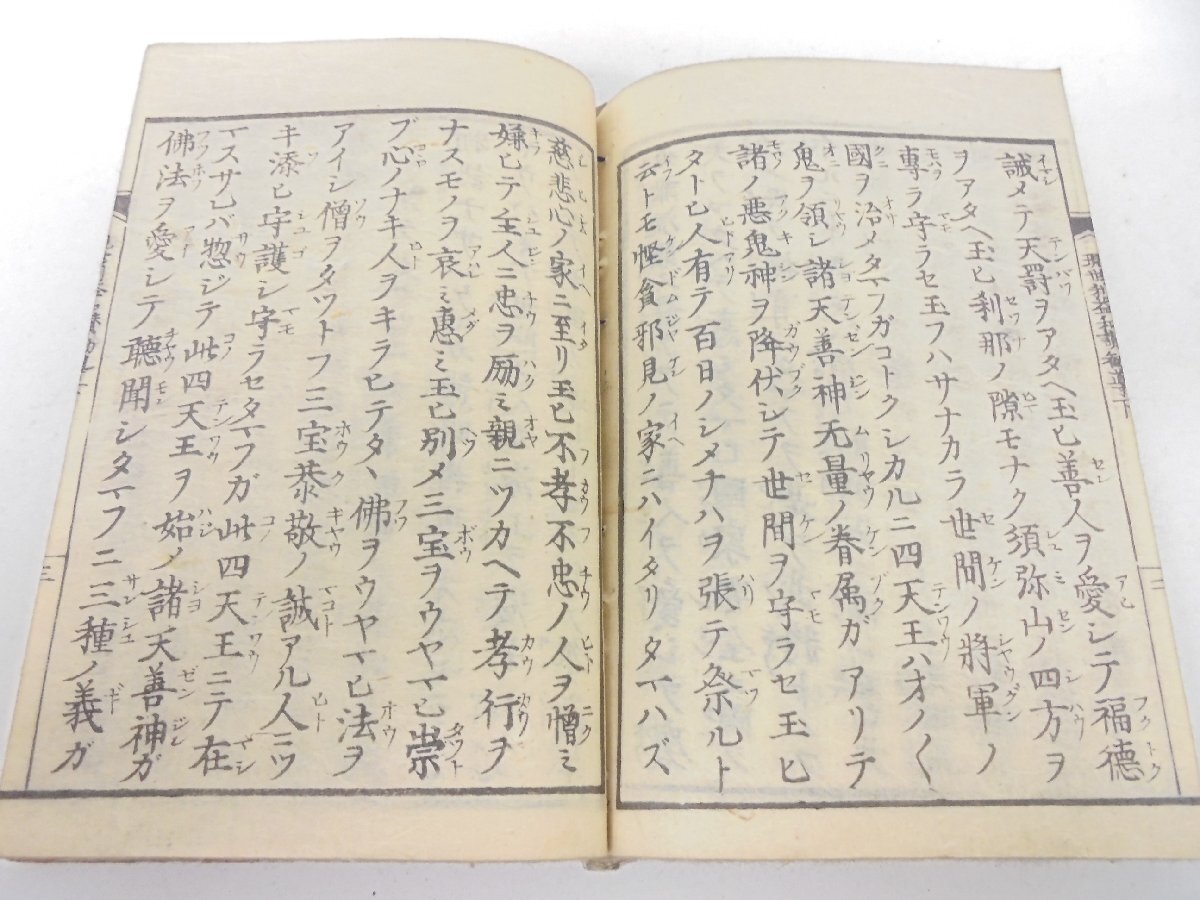 誡メテ天罸ヲアタヘ玉ヒ善人ヲ愛シテ福德
ヲアタヘ玉ヒ刹那ノ隙モナク須弥山ノ四方ヲ
専ラ守ラセ玉フハサナカラ世間ノ將軍ノ
國ヲ治メタマフガコトクシカルニ四天王ハオノ〱
鬼ヲ領シ諸天善神无量ノ眷属ガアリテ
諸ノ悪鬼神ヲ降伏シテ世間ヲ守ラセ玉ヒ
タトヒ人有テ百日ノシメナハヲ張テ祭ルト
云トモ慳貪邪見ノ家ニハイタリタマハズ
慈悲心ノ家ニ至リ玉ヒ不孝不忠ノ人ヲ憎ミ
嫌ヒテ主人ニ忠ヲ励ミ親ニツカヘテ孝行ヲ
ナスモノヲ哀ミ惠ミ玉ヒ別メ三宝ヲウヤマヒ崇
ブ心ノナキ人ヲキラヒテタヽ佛ヲウヤマヒ法ヲ
アイシ僧ヲタツトフ三宝恭敬ノ誠アル人ニツ
キ添ヒ守護シ守ラセタマフガ此四天王ニテ在
マスサレバ惣ジテ此四天王ヲ始ノ諸天善神ガ
佛法ヲ愛シテ聽聞シタマフニ三種ノ義ガ